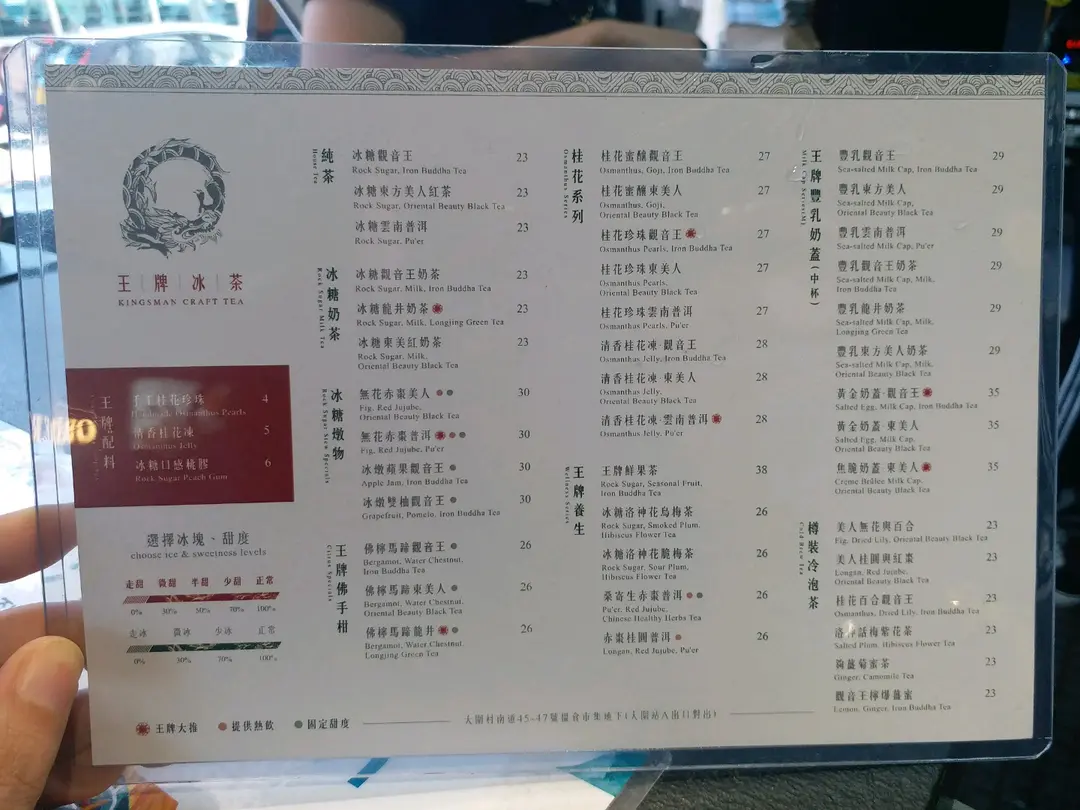 王牌冰茶
KINGSMAN CRAFT TEA
王牌配料
手工桂花珍珠 4
Handmade Osmanthus Pearls
清香桂花凍 5
Osmanthus Jelly
冰糖口感桃膠 6
Rock Sugar Peach Gum
選擇冰塊、甜度
choose ice & sweetness levels
走甜 微甜 半甜 少甜 正常
0% 30% 50% 70% 100%
走冰 微冰 少冰 正常
0% 30% 70% 100%
純茶
House Tea
冰糖觀音王 23
Rock Sugar, Iron Buddha Tea
冰糖東方美人紅茶 23
Rock Sugar, Oriental Beauty Black Tea
冰糖雲南普洱 23
Rock Sugar, Pu'er
冰糖奶茶
Rock Sugar Milk Tea
冰糖觀音王奶茶 23
Rock Sugar, Milk, Iron Buddha Tea
冰糖龍井奶茶 23
Rock Sugar, Milk, Longjing Green Tea
冰糖東美紅奶茶 23
Rock Sugar, Milk,
Oriental Beauty Black Tea
冰糖燉物
Rock Sugar Stew Specials
無花赤棗美人 30
Fig, Red Jujube,
Oriental Beauty Black Tea
無花赤棗普洱 30
Fig, Red Jujube, Pu'er
冰燉蘋果觀音王 30
Apple Jam, Iron Buddha Tea
冰燉雙柚觀音王 30
Grapefruit, Pomelo, Iron Buddha Tea
王牌佛手柑
Citrus Specials
佛檸馬蹄觀音王 26
Bergamot, Water Chestnut,
Iron Buddha Tea
佛檸馬蹄東美人 26
Bergamot, Water Chestnut,
Oriental Beauty Black Tea
佛檸馬蹄龍井 26
Bergamot, Water Chestnut,
Longjing Green Tea
桂花系列
Osmanthus Series
桂花蜜釀觀音王 27
Osmanthus, Goji, Iron Buddha Tea
桂花蜜釀東美人 27
Osmanthus, Goji,
Oriental Beauty Black Tea
桂花珍珠觀音王 27
Osmanthus Pearls, Iron Buddha Tea
桂花珍珠東美人 27
Osmanthus Pearls,
Oriental Beauty Black Tea
桂花珍珠雲南普洱 27
Osmanthus Pearls, Pu'er
清香桂花凍·觀音王 28
Osmanthus Jelly, Iron Buddha Tea
清香桂花凍·東美人 28
Osmanthus Jelly,
Oriental Beauty Black Tea
清香桂花凍·雲南普洱 28
Osmanthus Jelly, Pu'er
王牌養生
Wellness Series
王牌鮮果茶 38
Rock Sugar, Seasonal Fruit,
Iron Buddha Tea
冰糖洛神花烏梅茶 26
Rock Sugar, Smoked Plum,
Hibiscus Flower Tea
冰糖洛神花脆梅茶 26
Rock Sugar, Sour Plum,
Hibiscus Flower Tea
桑寄生赤棗普洱 26
Pu'er, Red Jujube,
Chinese Healthy Herbs Tea
赤棗桂圓普洱 26
Longan, Red Jujube, Pu'er
王牌豐乳奶蓋(中杯)
Milk Cap Series(M)
豐乳觀音王 29
Sea-salted Milk Cap, Iron Buddha Tea
豐乳東方美人 29
Sea-salted Milk Cap,
Oriental Beauty Black Tea
豐乳雲南普洱 29
Sea-salted Milk Cap, Pu'er
豐乳觀音王奶茶 29
Sea-salted Milk Cap, Milk,
Iron Buddha Tea
豐乳龍井奶茶 29
Sea-salted Milk Cap, Milk,
Longjing Green Tea
豐乳東方美人奶茶 29
Sea-salted Milk Cap, Milk,
Oriental Beauty Black Tea
黃金奶蓋·觀音王 35
Salted Egg, Milk Cap, Iron Buddha Tea
黃金奶蓋·東美人 35
Salted Egg, Milk Cap,
Oriental Beauty Black Tea
焦脆奶蓋·東美人 35
Crème Brûlée Milk Cap,
Oriental Beauty Black Tea
樽裝冷泡茶
Cold Brew Tea
美人無花與百合 23
Fig, Dried Lily, Oriental Beauty Black Tea
美人桂圓與紅棗 23
Longan, Red Jujube,
Oriental Beauty Black Tea
桂花百合觀音王 23
Osmanthus, Dried Lily, Iron Buddha Tea
洛神話梅紫花茶 23
Salted Plum, Hibiscus Flower Tea
薑菊蜜茶 23
Ginger, Camomile Tea
觀音王檸爆薑蜜 23
Lemon, Ginger, Iron Buddha Tea
王牌大推 提供熱飲 固定甜度
大圍村南道45-47號協會市集地下(大圍站A出口對出)